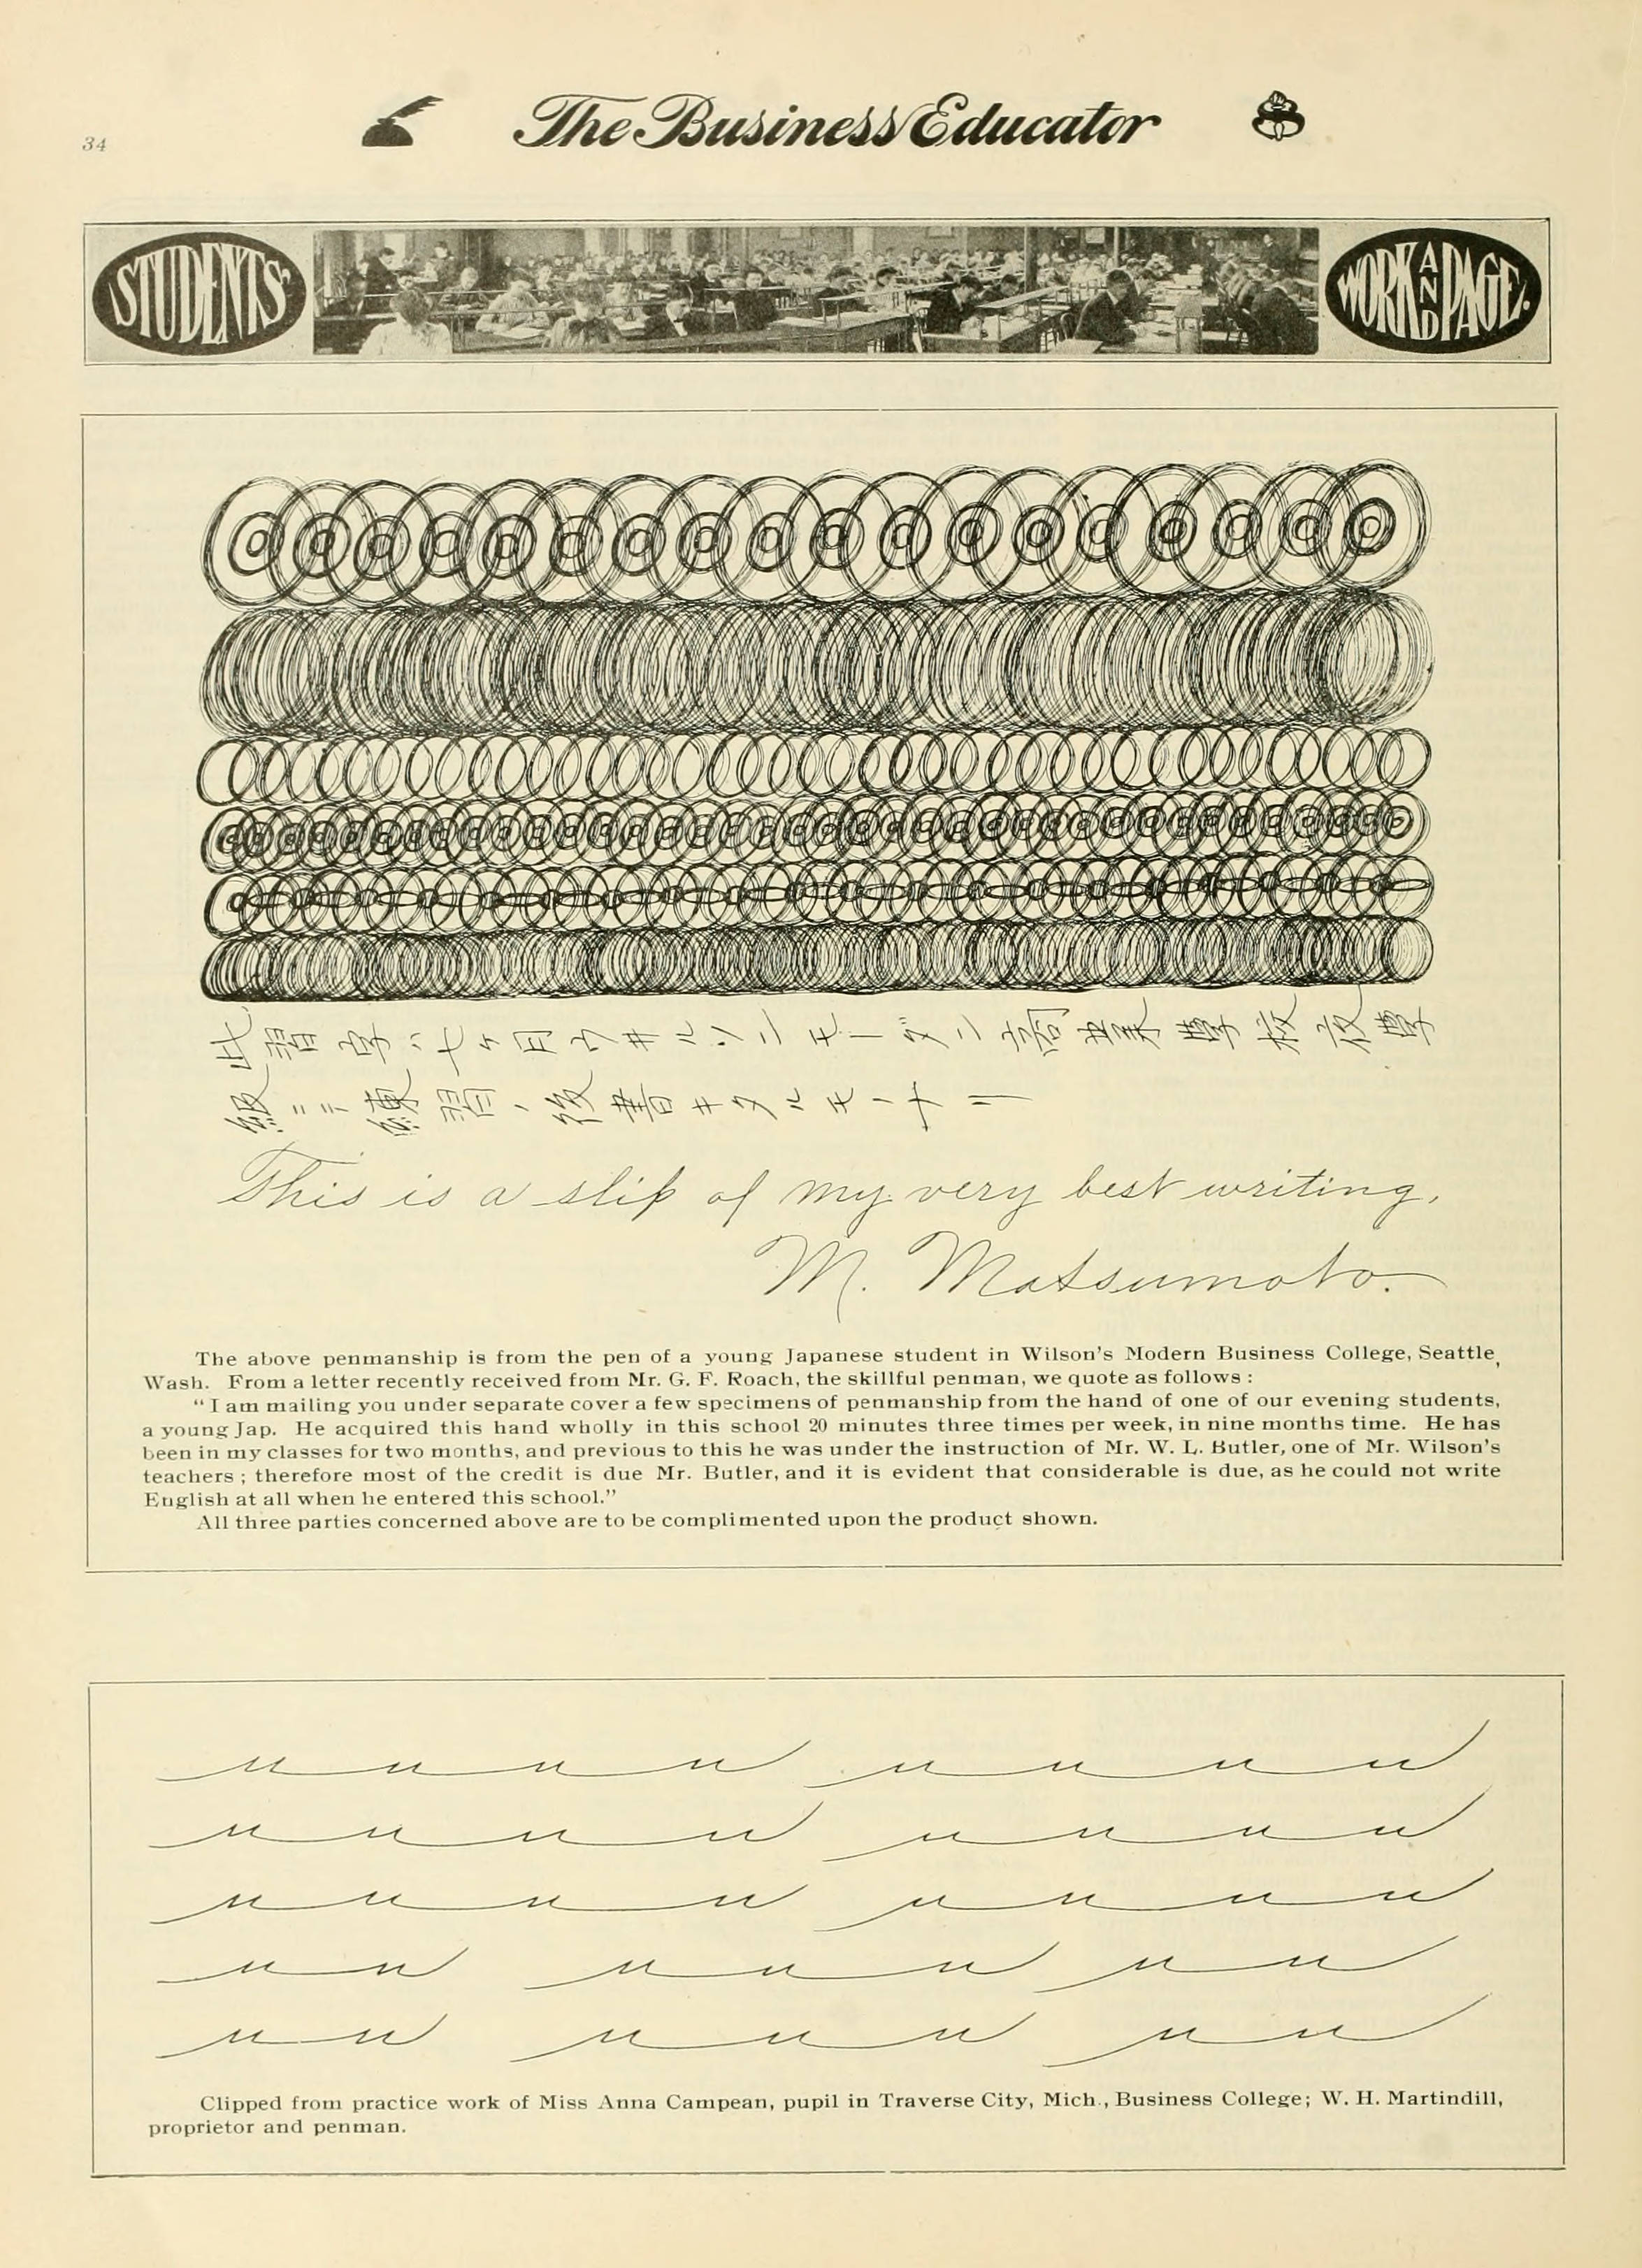 34
The Business Educator
STUDENTS'
WORK AND PAGE.
此習字ハ七ケ月ウヰルソンモーダン商業學校夜學
級ニテ練習ノ後書キタルモノナリ
This is a slip of my very best writing.
M. Matsumoto.
The above penmanship is from the pen of a young Japanese student in Wilson's Modern Business College, Seattle,
Wash. From a letter recently received from Mr. G. F. Roach, the skillful penman, we quote as follows :
" I am mailing you under separate cover a few specimens of penmanship from the hand of one of our evening students,
a young Jap. He acquired this hand wholly in this school 20 minutes three times per week, in nine months time. He has
been in my classes for two months, and previous to this he was under the instruction of Mr. W. L. Butler, one of Mr. Wilson's
teachers ; therefore most of the credit is due Mr. Butler, and it is evident that considerable is due, as he could not write
English at all when he entered this school."
All three parties concerned above are to be complimented upon the product shown.
Clipped from practice work of Miss Anna Campean, pupil in Traverse City, Mich., Business College; W. H. Martindill,
proprietor and penman.